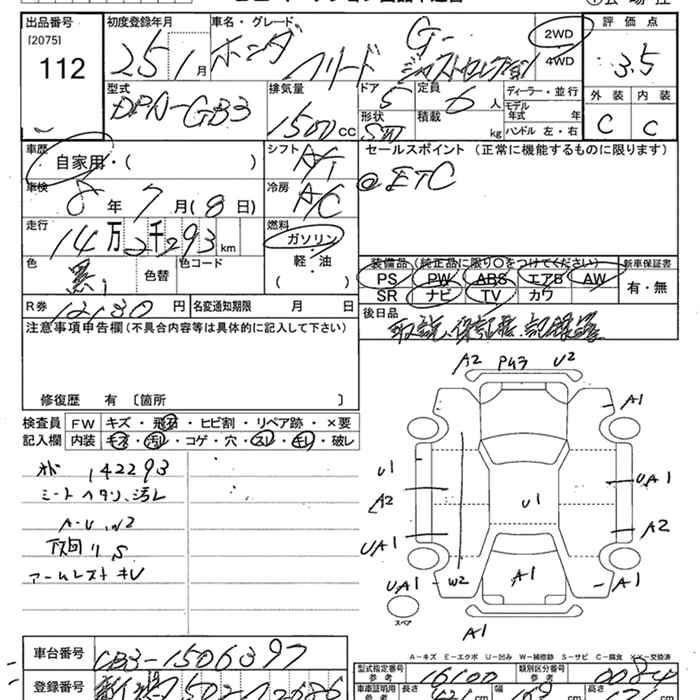 出品番号
[2075]
112
初度登録年月
25 1 月
車名・グレード
ホンダ フリード
G-
ジャストセレクション
2WD
4WD
評価点
3.5
外装 内装
C C
型式
DBA-GB3
排気量
1500 cc
ドア
5
定員
6 人
形状
SW
積載
kg
ディーラー・並行
モデル
年式 年
ハンドル 左・右
車歴
自家用・( )
シフト
AT
セールスポイント (正常に機能するものに限ります)
@ETC
車検
8 年 7 月 (8 日)
冷房
A/C
走行
14万2千293 km
燃料
ガソリン
軽・油
( )
色
黒
色替
色コード
装備品 (純正品に限り○をつけてください)
PS PW ABS エアB AW
SR ナビ TV カワ
新車保証書
有・無
R券
12130 円
名変通知期限 月 日
後日品
取説、保証書、記録簿
注意事項申告欄(不具合内容等は具体的に記入して下さい)
修復歴 有 〔箇所 〕
検査員
記入欄
FW キズ・飛石・ヒビ割・リペア跡・×要
内装 キズ・汚レ・コゲ・穴・スレ・キレ・破レ
142293
シートヘタリ、汚レ
A-U
下回りS
アームレストキレ
A2 P43 U2
A1
U1
A2
UA1
UA1
W2
U1
A1
UA1
A2
A1
A1
スペア
A-キズ E-エクボ U-凹み W-補修跡 S-サビ C-腐食 XX-交換済
車台番号
GB3-1506397
登録番号
502
型式指定番号
参考
16100
類別区分番号
参考
0084
車庫証明用
参考
長さ
cm
幅
cm